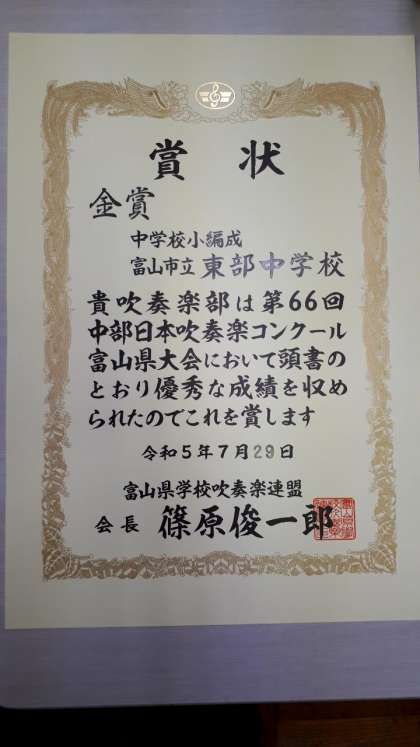 賞状
金賞
中学校小編成
富山市立 東部中学校
貴吹奏楽部は第66回
中部日本吹奏楽コンクール
富山県大会において頭書の
とおり優秀な成績を収め
られたのでこれを賞します
令和5年7月29日
富山県学校吹奏楽連盟
会長 篠原俊一郎